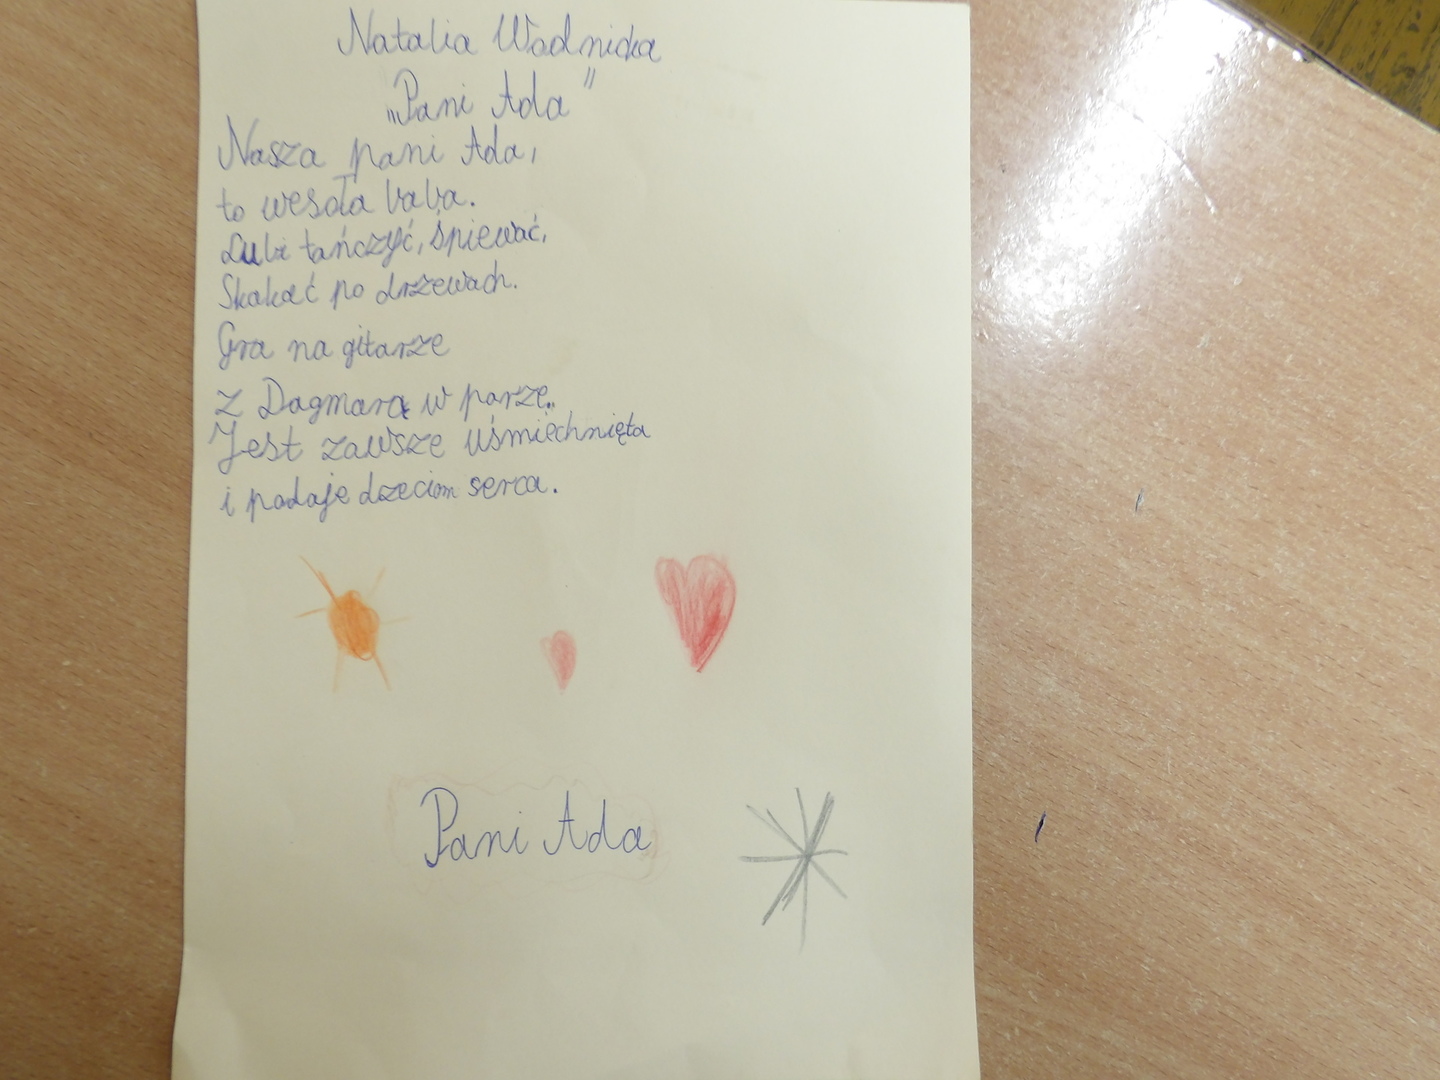 Natalia Wodnicka
„Pani Ada"
Nasza pani Ada,
to wesoła baba.
Lubi tańczyć, śpiewać,
Skakać po drzewach.
Gra na gitarze
z Dagmarą w parze.
Jest zawsze uśmiechnięta
i podaje dzeciom serca.
Pani Ada